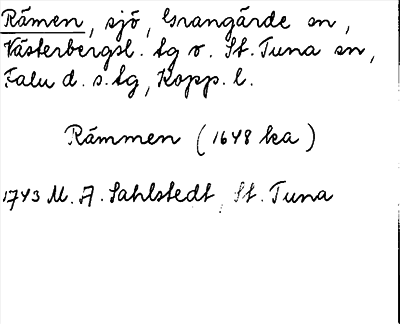 Råmen, sjö, Grangärde sn,
Västerbergsl. tg o. St. Tuna sn,
Falu d. s. tg, Kopp. l.
Råmmen (1648 ka)
1743 M. A. Sahlstedt, St. Tuna